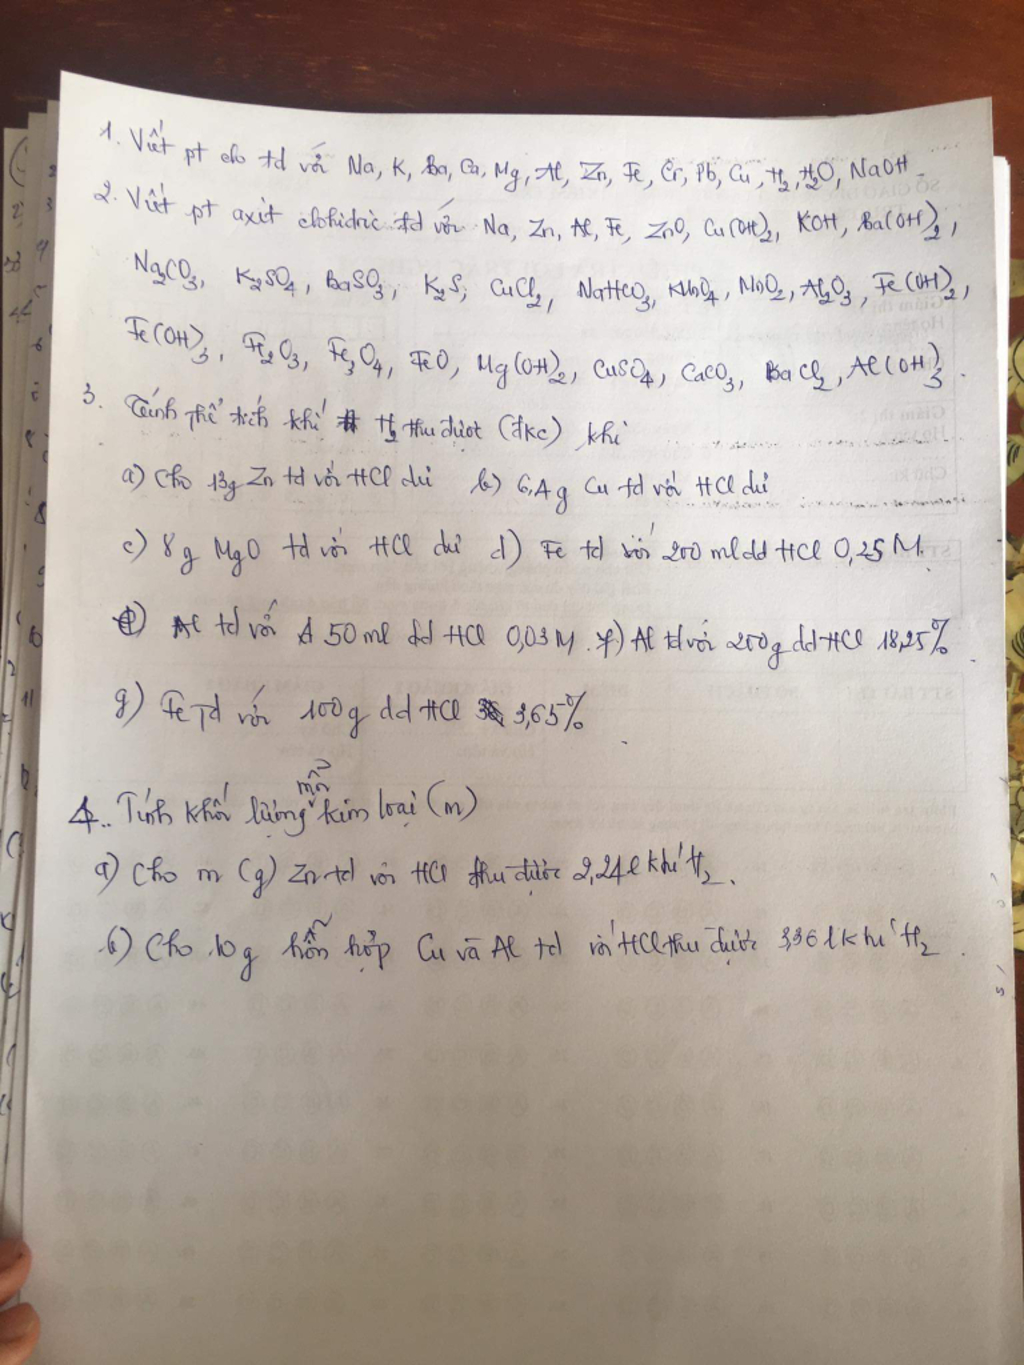 1. Viết pt clo td với Na, K, Ba, Ca, Mg, Al, Zn, Fe, Cr, Pb, Cu, H2, H2O, NaOH
2. Viết pt axit clohidric td với Na, Zn, Al, Fe, ZnO, Cu(OH)2, KOH, Ba(OH)2,
Na2CO3, K2SO4, BaSO3, K2S, CuCl2, NaHCO3, KMnO4, MnO2, Al2O3, Fe(OH)2,
Fe(OH)3, Fe2O3, Fe3O4, FeO, Mg(OH)2, CuSO4, CaCO3, BaCl2, Al(OH)3.
3. Tính thể tích khí H2 thu được (đkc) khi
a) Cho 13g Zn td với HCl dư b) 6,4g Cu td với HCl dư
c) 8g MgO td với HCl dư d) Fe td với 200 ml dd HCl 0,25M.
e) Al td với 50ml dd HCl 0,03M. f) Al td với 200g dd HCl 18,25%
g) Fe Td với 100g dd HCl 3,65%
4. Tính khối lượng mỗi kim loại (m)
a) Cho m (g) Zn td với HCl thu được 2,24l khí H2.
b) Cho 10g hỗn hợp Cu và Al td với HCl thu được 3,36 l khí H2.